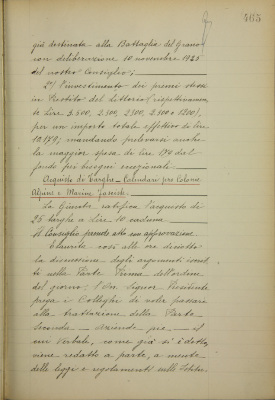 465
già destinata alla Battaglia del Grano
con deliberazione 10 novembre 1925
del nostro Consiglio;
2) l'investimento dei premi stessi
in Prestito del Littorio (rispettivamen
te Lire 3.500, 2.500, 2.500, 2.500 e 1200),
per un importo totale effettivo di Lire
10.179, mandando prelevarsi anche
la maggior spesa di Lire 179 dal
fondo pei bisogni eccezionali
Acquisto di Targhe - Calendari pro Colonie
Alpine e Marine Fasciste.
La Giunta ratifica l'acquisto di
25 targhe a Lire 10 cadauna
Il Consiglio prende atto con approvazione
Esaurita così alle ore diciotto
la discussione degli argomenti iscrit
ti nella Parte Prima dell'ordine
del giorno, l'On. Signor Presidente
prega i Colleghi di voler passare
alla trattazione della Parte
Seconda - Aziende pie - il
cui Verbale, come già si è detto,
viene redatto a parte, a mente
delle leggi e regolamenti sulle Istitu-